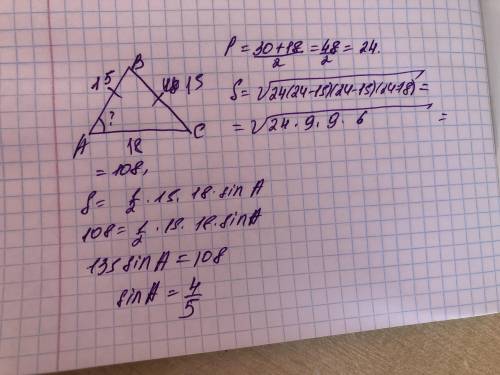 B
15
15
?
A
C
18
P = 30+18/2 = 48/2 = 24.
S = √24(24-15)(24-15)(24-18) =
= √24 · 9 · 9 · 6 =
= 108,
S = 1/2 · 15 · 18 · sin A
108 = 1/2 · 15 · 18 · sin A
135 sin A = 108
sin A = 4/5